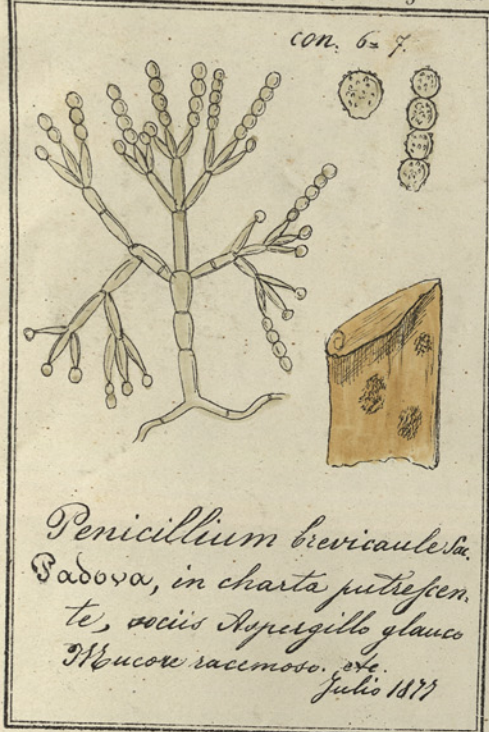 con. 6 = 7.
Penicillium brevicaule Sac.
Padova, in charta putrescen-
te, sociis Aspergillo glauco
Mucore racemoso. etc.
Julio 1877